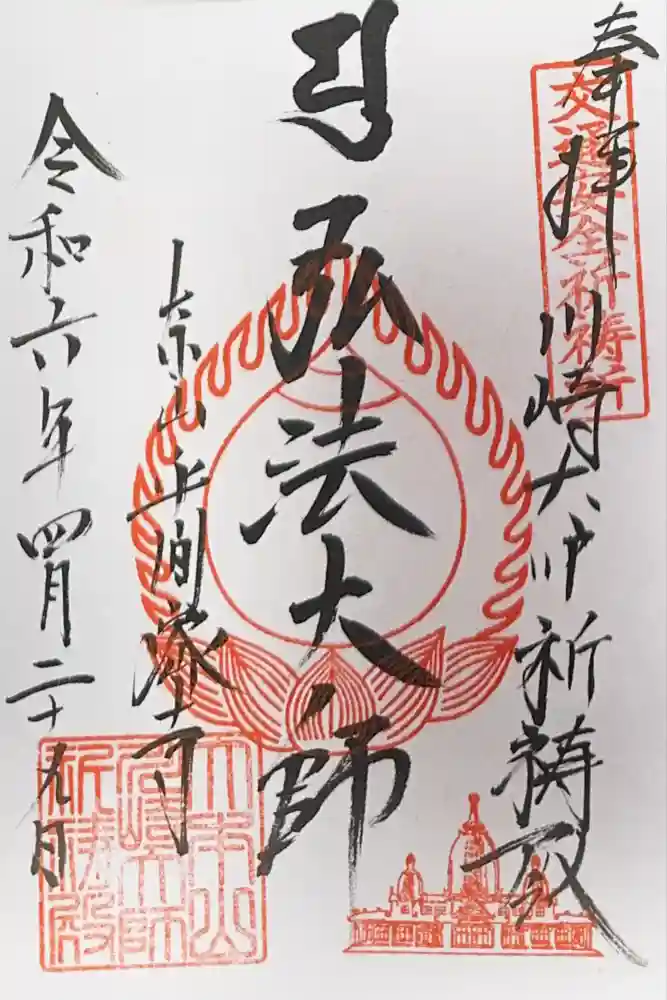 奉拝
交通安全祈祷所
川崎大師祈祷殿
弘法大師
大本山平間密寺
令和六年四月二十九日
大本山
川崎大師
祈祷殿